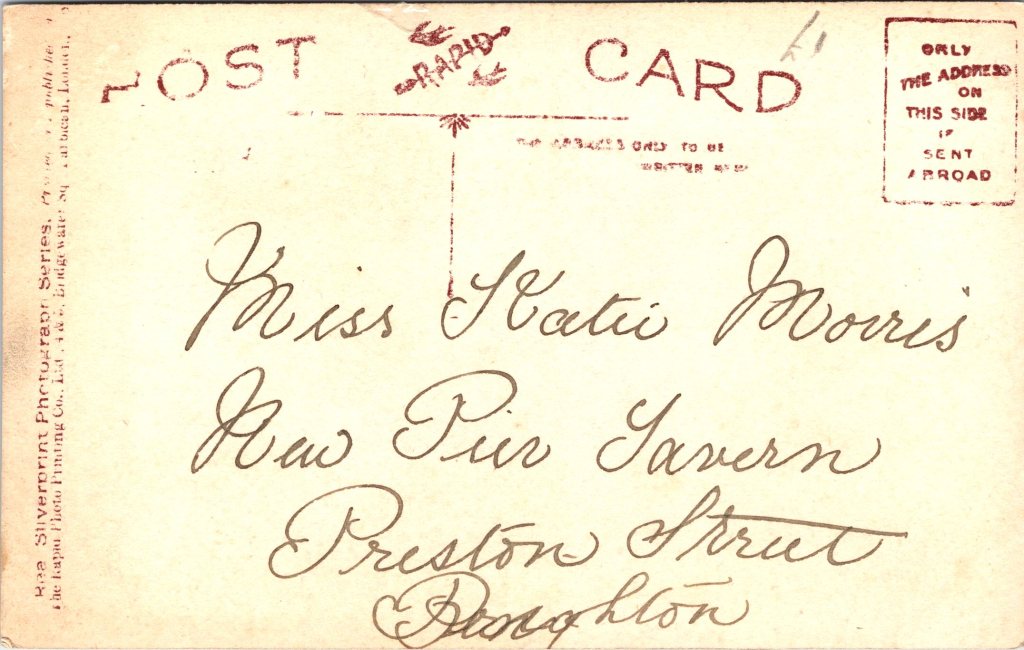 POST CARD
RAPID
THE ADDRESS ONLY TO BE
WRITTEN HERE
ONLY
THE ADDRESS
ON
THIS SIDE
IF
SENT
ABROAD
Miss Katie Morris
New Pier Tavern
Preston Street
Brighton
Real Silverprint Photograph Series.
The Rapid Photo Printing Co., Ltd., 4 & 5, Bridgewater Sq., Barbican, London.